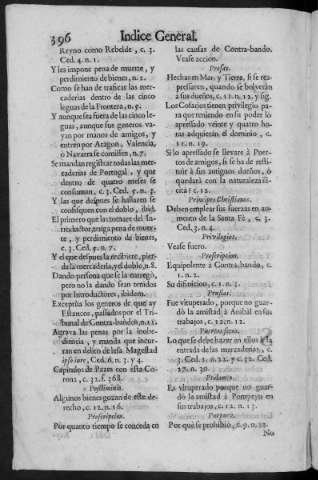 396 Indice General.
Reyno como Rebelde, c. 3.
Ced. 4. n. 1.
Y les impone pena de muerte, y
perdimiento de bienes, n. 2.
Como se han de traficar las mer-
caderias dentro de las cinco
leguas de la Frontera, n. 5.
Y aunque sea fuera de las cinco le-
guas, aunque sus generos va-
yan por manos de amigos, y
entren por Aragon, Valencia,
ò Navarra se comissen, n. 7.
Se mandan registrar todas las mer-
caderias de Portugal, y que
dentro de quatro meses se
consuman, c. 3. Ced. 5. n. 3.
Y las que despues se hallaren se
confisquen con el doblo, ibid.
El primero que las tomare del In-
troductor, tenga pena de muer-
te, y perdimiento de bienes,
c. 3. Ced. 5. n. 7.
Y el que despues la recibiere, pier-
da la mercaderia, y el doblo, n. 8.
Dando persona que se la entregò,
pero no la dando sean tenidos
por Introductores, ibidem.
Exceptùa los generos de que ay
Estancos, passados por el Tri-
bunal de Contra-bando, n. 12.
Agrava las penas por la inobe-
diencia, y manda que incur-
ran en delito de lesa Magestad
ipso iure, Ced. 6. n. 3. y 4.
Capitulos de Pazes con esta Co-
rona, c. 32. f. 368.
Postliminio.
Algunos bienes gozan de este de-
recho, c. 12. n. 16.
Proscripcion.
Por quanto tiempo se conceda en
las causas de Contra-bando.
Vease accion.
Presas.
Hechas en Mar, y Tierra, si se re-
pressaren, quando se bolveràn
à sus dueños, c. 12. n. 12. y sig.
Los Cosarios tienen privilegio pa-
ra que teniendo en su poder lo
apressado veinte y quatro ho-
ras adquieran el dominio, c.
12. n. 19.
Si lo apressado se llevare à Puer-
tos de amigos, si se ha de resti-
tuir à sus antiguos dueños, ò
quedarà con la naturaleza ili-
cita? c. 12.
Principes Christianos.
Deben emplear sus fuerzas en au-
mento de la Santa Fè, c. 3.
Ced. 3. n. 4.
Privilegios.
Vease fuero.
Proscripcion.
Equipolente à Contra-bando, c.
1. n. 2.
Su difinicion, c. 1. n. 3.
Prusias.
Fue vituperado, porque no guar-
dò la amistad à Anibal en sus
trabajos, c. 12. n. 12.
Lo que se debe hazer en ellos à la
entrada de las mercaderias, c.
3. Ced. 1. n. 22. y c. 32. Ced.
27. n. 30.
Es vituperado porque no guar-
dò la amistad à Pompeyo en
sus trabajos, c. 12. n. 13.
Por què se prohibiò, c. 9. n. 22.
No